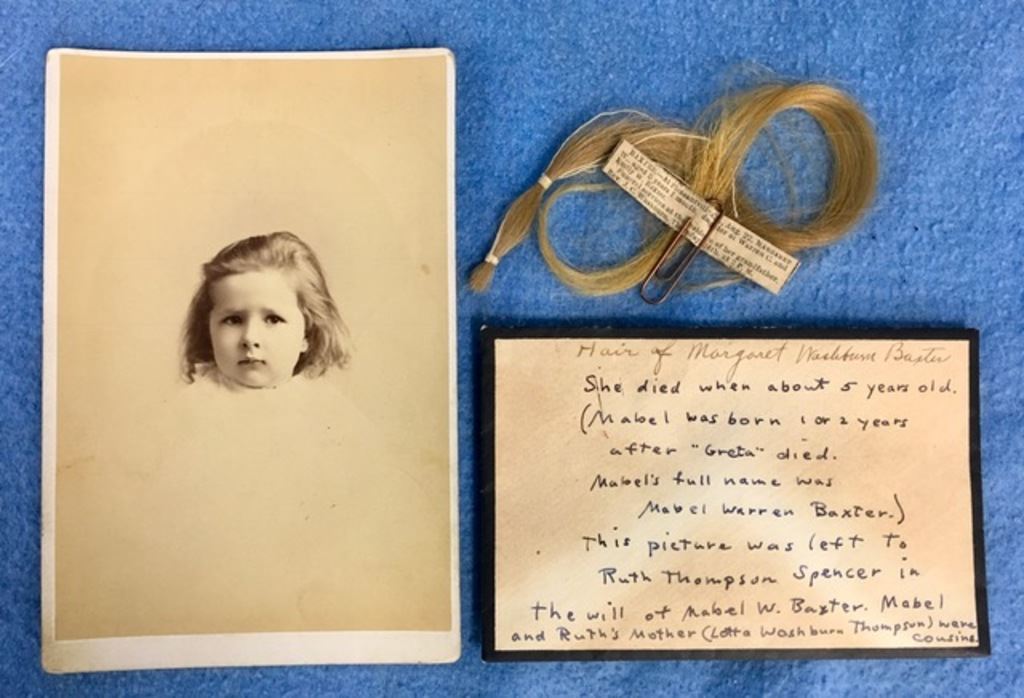 BAXTER
Aug. 22, MARGARET
of her grandfather,
Hair of Margaret Washburn Baxter
She died when about 5 years old.
(Mabel was born 1 or 2 years
after "Greta" died.
Mabel's full name was
Mabel Warren Baxter.)
This picture was left to
Ruth Thompson Spencer in
the will of Mabel W. Baxter. Mabel
and Ruth's Mother (Lotta Washburn Thompson) were
cousins.